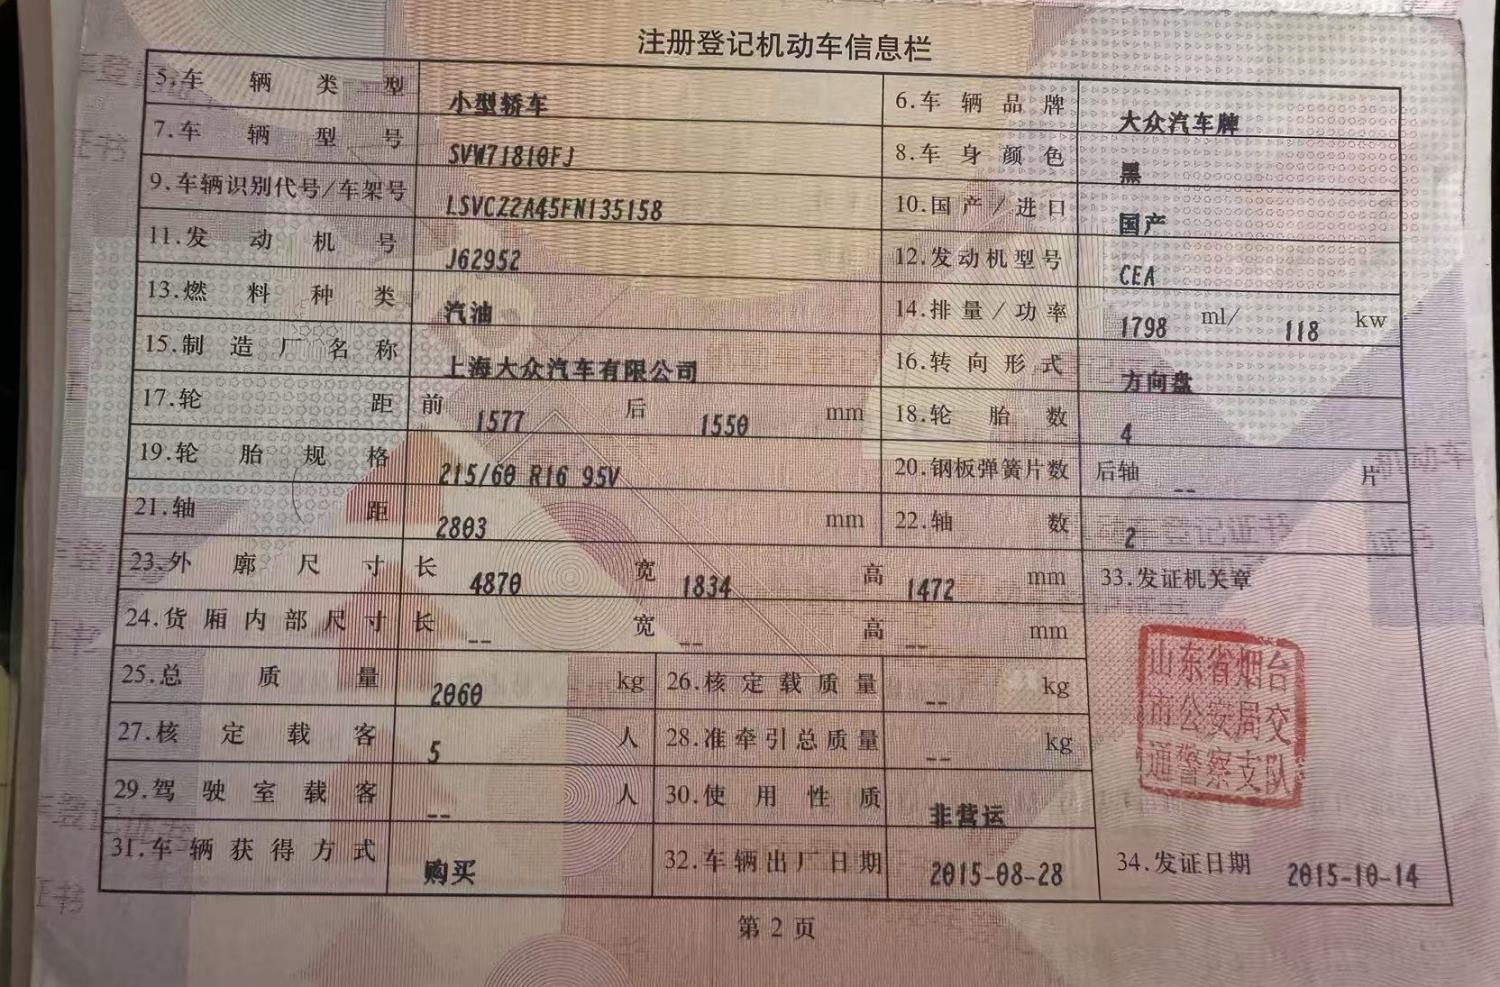 注册登记机动车信息栏
5.车辆类型 小型轿车 6.车辆品牌 大众汽车牌
7.车辆型号 SVW71810FJ 8.车身颜色 黑
9.车辆识别代号/车架号 LSVCZ2A45FN135158 10.国产/进口 国产
11.发动机号 J62952 12.发动机型号 CEA
13.燃料种类 汽油 14.排量/功率 1798 ml/ 118 kw
15.制造厂名称 上海大众汽车有限公司 16.转向形式 方向盘
17.轮距 前 1577 后 1550 mm 18.轮胎数 4
19.轮胎规格 215/60 R16 95V 20.钢板弹簧片数 后轴 -- 片
21.轴距 2803 mm 22.轴数 2
23.外廓尺寸 长 4870 宽 1834 高 1472 mm 33.发证机关章
24.货厢内部尺寸 长 -- 宽 -- 高 -- mm
山东省烟台
市公安局交
通警察支队
25.总质量 2060 kg 26.核定载质量 -- kg
27.核定载客 5 人 28.准牵引总质量 -- kg
29.驾驶室载客 -- 人 30.使用性质 非营运
31.车辆获得方式 购买 32.车辆出厂日期 2015-08-28 34.发证日期 2015-10-14
第 2 页